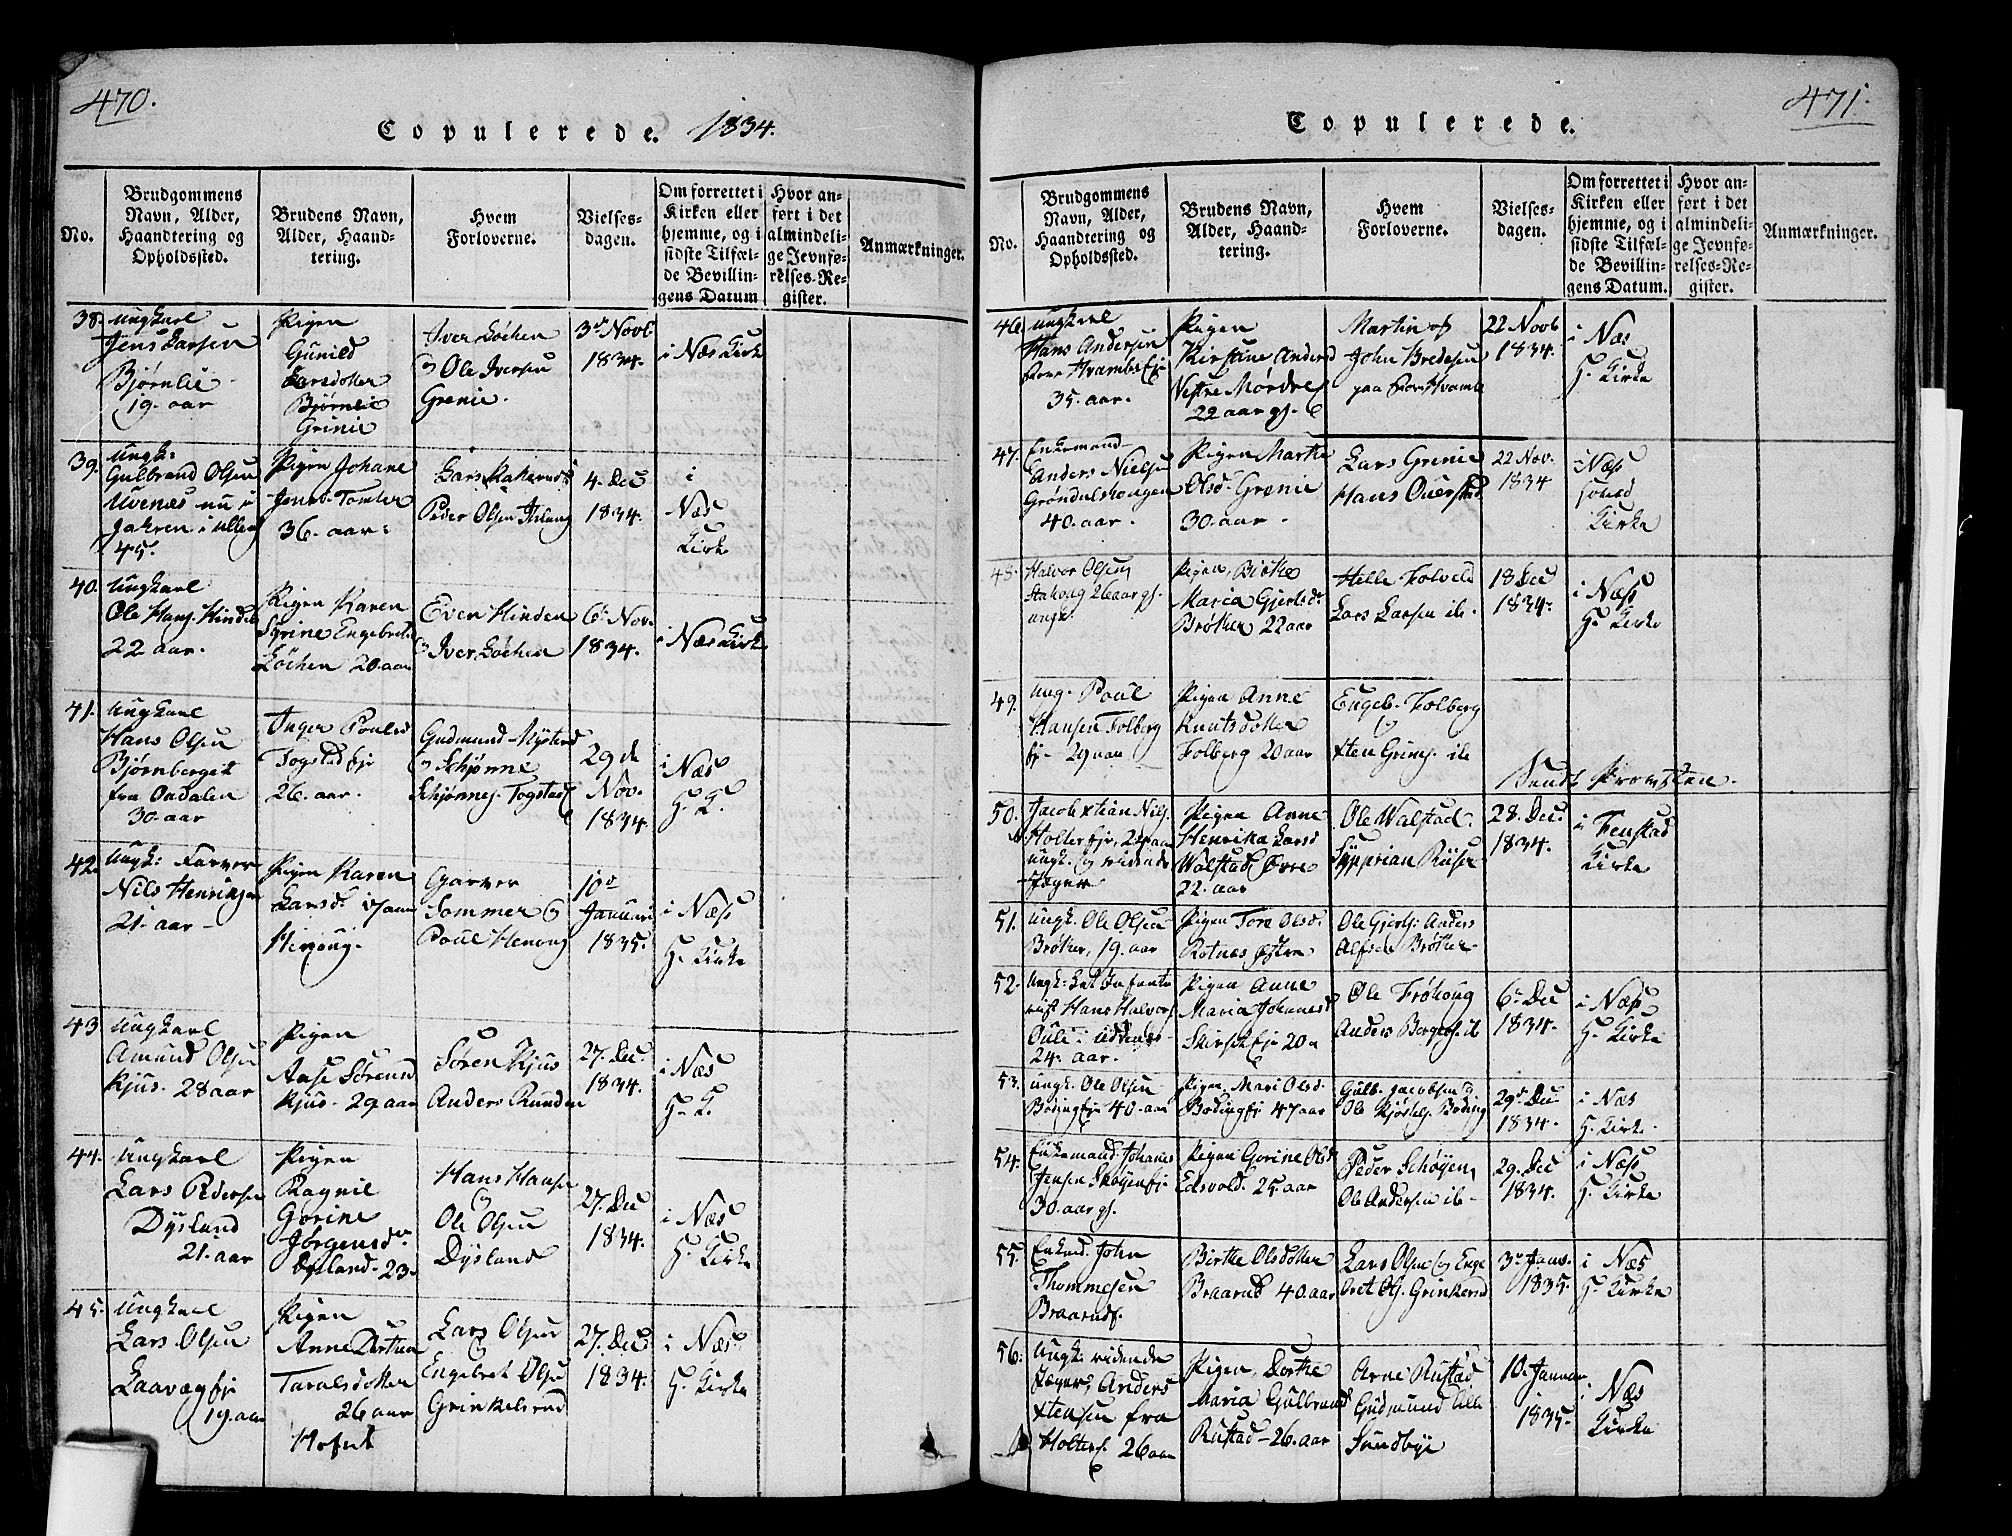 470.
Copulerede. 1834.
No.
Brudgommens
Navn, Alder,
Haandtering og
Opholdssted.
Brudens Navn,
Alder, Haand-
tering.
Hvem
Forloverne.
Vielses-
dagen.
Om forrettet i
Kirken eller
hjemme, og i
sidste Tilfæl-
de Bevillin-
gens Datum
Hvor an-
ført i det
almindeli-
ge Jevnfø-
relses-Re-
gister.
Anmærkninger.
38.
Ungkarl
Jens Larsen
Bjørnlie
19. aar
Pigen
Gunild
Larsdotter
Bjørnlie
Grinie
Iver Løchen
Ole Iversen
Grenie.
3d Novb
1834.
i Næs Kirk
39.
Ungk:
Gulbrand Olsen
Uvenæs nu i
45.
Pigen Johane
Jensd. Tomter
36. aar.
Lars
Peder Olsen
4. Dec
1834.
i
Næs
Kirke
40.
Ungkarl
Ole Hans. Hinden
22 aar.
Pigen Karen
Syrine Engebrets
Løchen 20 aar
Even Hinden
Iver Løchen
6. Nov.
1834.
i Næs Kirke
41.
Ungkarl
Hans Olsen
Bjørnberget
fra Oudalen
30. aar
Inger Poulsd
Togstad eje
26. aar.
Gudmund Nysted
Schjønne
Schjønnej. Togstad
29 de
Nov.
1834.
i Næs
H. K.
42.
Ungk: Farver
Nils Henriksen
21. aar
Pigen Karen
Larsd. 17 aar
Henoug.
Garver
Sommer
Poul Henoug
10d
Januari
1835.
i Næss
H. Kirke
43
Ungkarl
Amund Olsen
Kjus. 28 aar
Pigen
Aase Sørensd
Kjus. 29 aar
Søren Kjus
Anders Runden
27. Dec.
1834.
i Næs
H. K.
44.
Ungkarl
Lars Pedersen
Dysland
21. aar
Pigen
Ragnil
Gorine
Jørgensdr
Dysland. 23.
Hans Hansen
Ole Olsen
Dysland
27. Dec
1834.
i Næs
H. Kirke
45.
Ungkarl
Lars Olsen
Laavæg eje
19. aar
Pigen
Anne Dorthea
Taralsdotter
26 aar
Hofnet
Lars Olsen
Engebret Olsen
Grinkelsrud
27. Dec
1834.
i Næs
H. Kirke
471.
Copulerede.
No.
Brudgommens
Navn, Alder,
Haandtering og
Opholdssted.
Brudens Navn,
Alder, Haand-
tering.
Hvem
Forloverne.
Vielses-
dagen.
Om forrettet i
Kirken eller
hjemme, og i
sidste Tilfæl-
de Bevillin-
gens Datum.
Hvor an-
ført i det
almindeli-
ge Jevnfø-
relses-Re-
gister.
Anmærkninger.
46.
Ungkarl
Hans Andersen
Store Hvambs Eje
35. aar.
Pigen
Kirstine Andersd
Vestre Mørdre
22 aar gl.
Martin og
John Bredesen
paa Store Hvamb
22 Novb
1834.
i Næs
H. Kirke
47.
Enkemand
Anders Nielsen
Grøndalshougen
40. aar.
Pigen Marthe
Olsd. Grenie
30. aar.
Lars Grenie
Hans Ouerstad
22 Nov.
1834
i Næss
hoved
Kirke
48.
Halvor Olsen
26 aar gl.
ungk.
Pigen Birthe
Maria Gjertsdr
Brøther 22 aar
Helle Folveld
Lars Larsen ib.
18 Dec
1834.
i Næss
H. Kirke
49.
Ung. Poul
Hansen Folberg
ej 29 aar
Pigen Anne
Knutsdotter
Folberg 20 aar
Engeb. Folberg
Xten Grims. ib
Sendt Provsten.
50.
Jacob Xtian Nils.
Holter Eje,
ungk. og ridende
Jæger
Pigen Anne
Henrika Larsd
Walstad Øvre
22. aar
Ole Walstad.
Sypprian Riise
28. Dec.
1834.
i Fenstad
Kirke
51.
Ungk. Ole Olsen
Brøther, 19. aar
Pigen Tore Olsd.
Rotnes Østre
Ole Gjerts. Anders
Brøther
52.
Ungk: Let Infante
rist Hans Halvors.
24. aar.
Pigen Anne
Maria Johannesd
20 a
Ole Frøhoug
Anders
6. Dec
1834.
i Næss
H. Kirke
53.
Ungk. Ole Olsen
Boding ej 40. aar
Pigen, Mari Olsd.
Boding ej 47 aar
Gulb. Jacobsen
Ole Kjøstels. Boding
29d Dec
1834.
i Næs
H. Kirke.
54.
Enkemand Johanes
Jensen Skøyen Ej
30. aar gl.
Pigen Gorine Olsd
Edsvold. 25. aar
Peder Schøyen
Ole Andersen ib.
29. Dec
1834.
i Næss
H. Kirke
55.
Enkmd. John
Thommesen
Braarud.
Birthe Olsdotter
Braarud 40. aar
Lars Olsen og Enge
bret Ols. Grinkerud
3d Janr.
1835.
i Næs
H. Kirke
56.
Ungk: ridende
Jæger, Anders
Xtensen fra
Holter. 26 aar
Pigen Dorthe
Maria Gulbrandsd
Rustad. 26. aar
Arne Rustad
Gudmund Lille
Sundbye
10. Januar
1835.
i Næs
Kirke